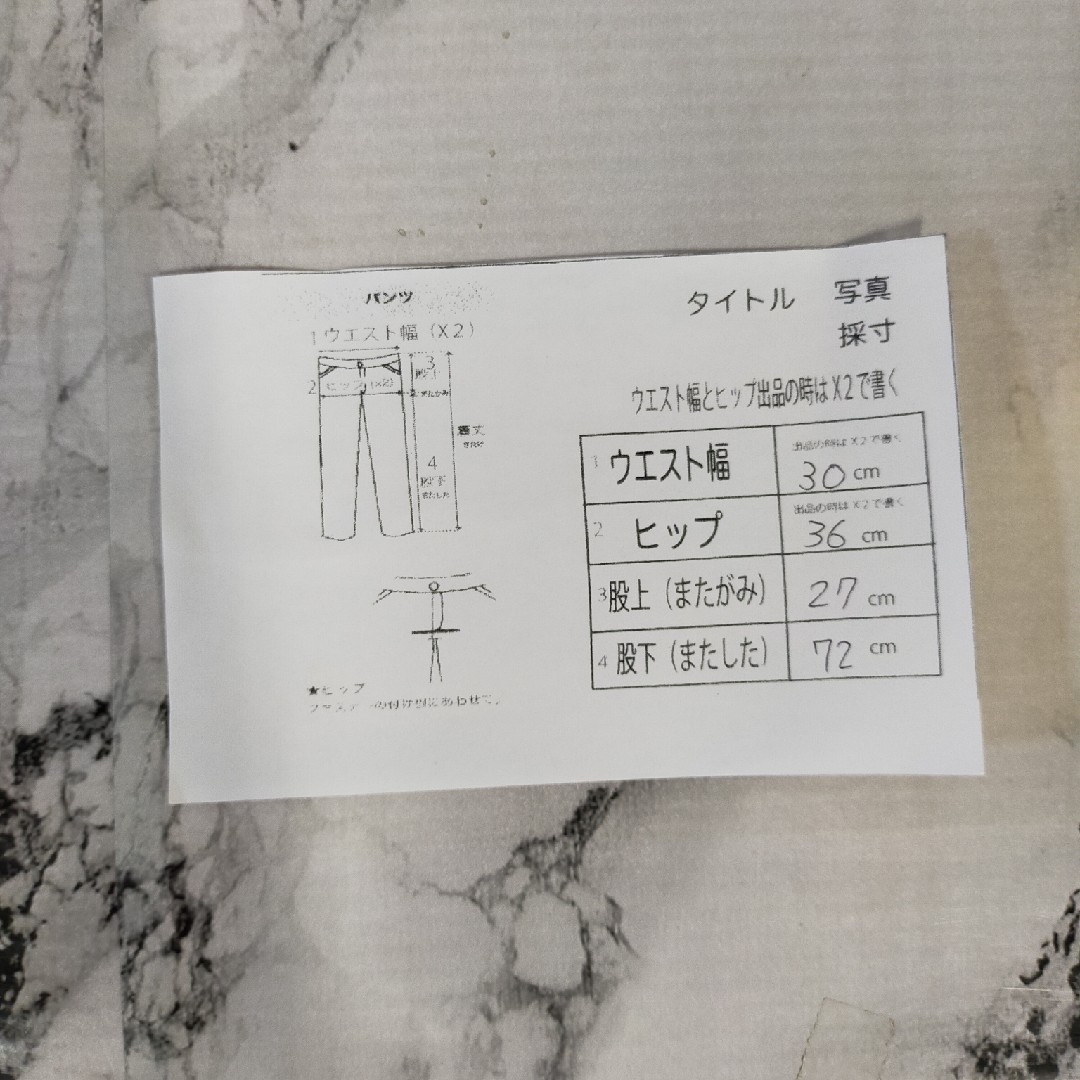 パンツ
1 ウエスト幅（X２）
2 ヒップ（X2）
3
股上
またがみ
着丈
4
股下
またした
★ヒップ
タイトル 写真
採寸
ウエスト幅とヒップ出品の時はX２で書く
1 ウエスト幅 出品の時はX２で書く 30 cm
2 ヒップ 出品の時はX２で書く 36 cm
3 股上（またがみ） 27 cm
4 股下（またした） 72 cm